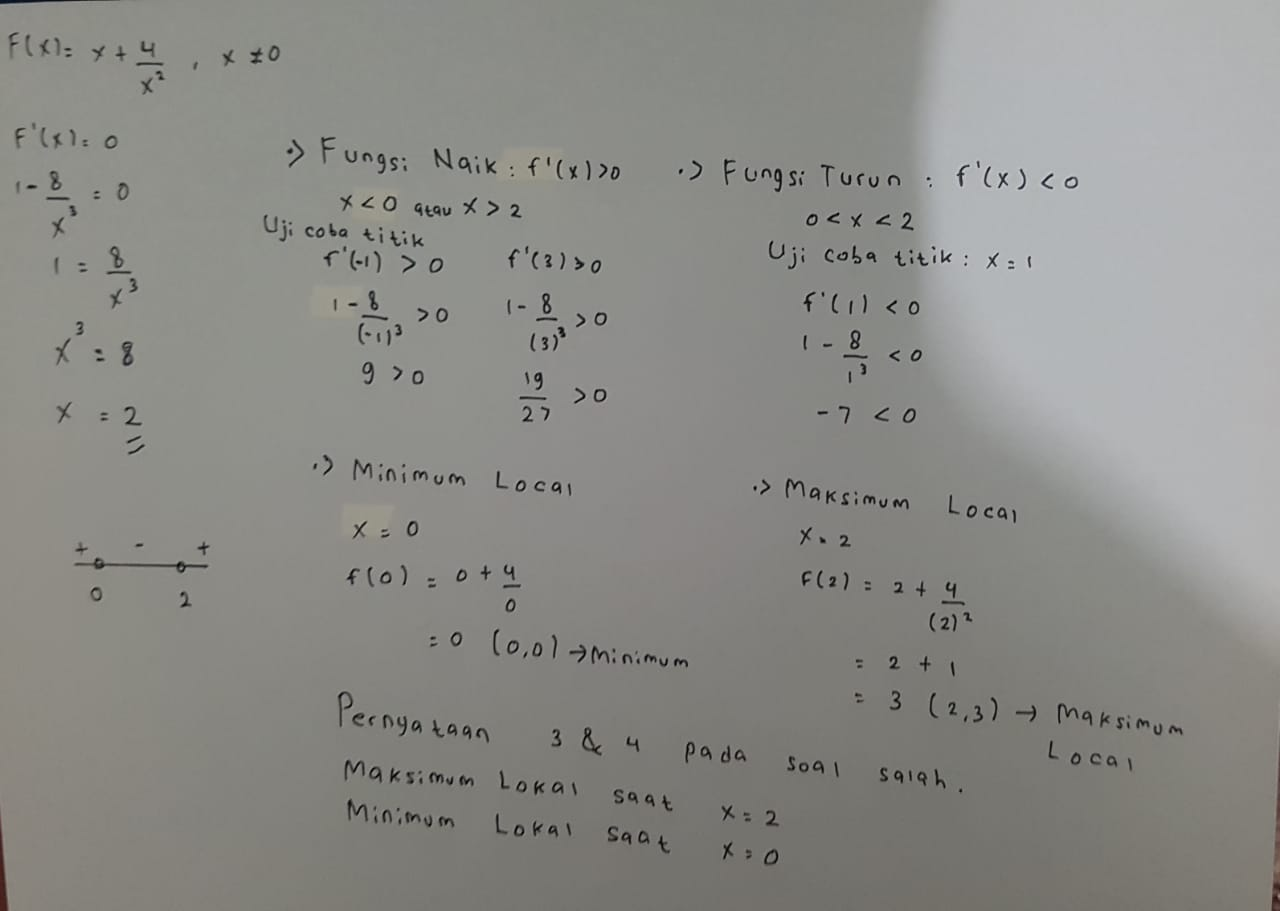 F(x) = x + 4/x², x ≠ 0
F'(x) = 0
1 - 8/x³ = 0
1 = 8/x³
x³ = 8
x = 2
+ - +
0 2
•> Fungsi Naik : f'(x) > 0
x < 0 atau x > 2
Uji coba titik
f'(-1) > 0
1 - 8/(-1)³ > 0
9 > 0
f'(3) > 0
1 - 8/(3)³ > 0
19/27 > 0
•> Fungsi Turun : f'(x) < 0
0 < x < 2
Uji coba titik : x = 1
f'(1) < 0
1 - 8/1³ < 0
-7 < 0
•> Minimum Local
x = 0
f(0) = 0 + 4/0
= 0 (0,0) → Minimum
•> Maksimum Local
x = 2
F(2) = 2 + 4/(2)²
= 2 + 1
= 3 (2,3) → Maksimum
Local
Pernyataan 3 & 4 pada soal salah.
Maksimum Lokal saat x = 2
Minimum Lokal saat x = 0